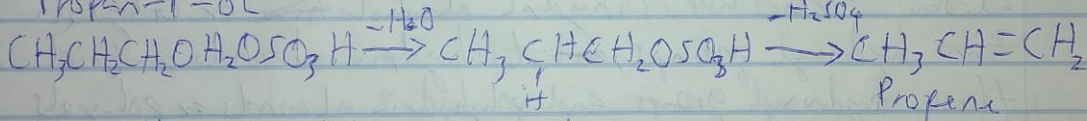 Propan-1-OL
CH₃CH₂CH₂OH₂OSO₃H —-H₂O→ CH₃CHCH₂OSO₃H —-H₂SO₄→ CH₃CH=CH₂
H
Propene